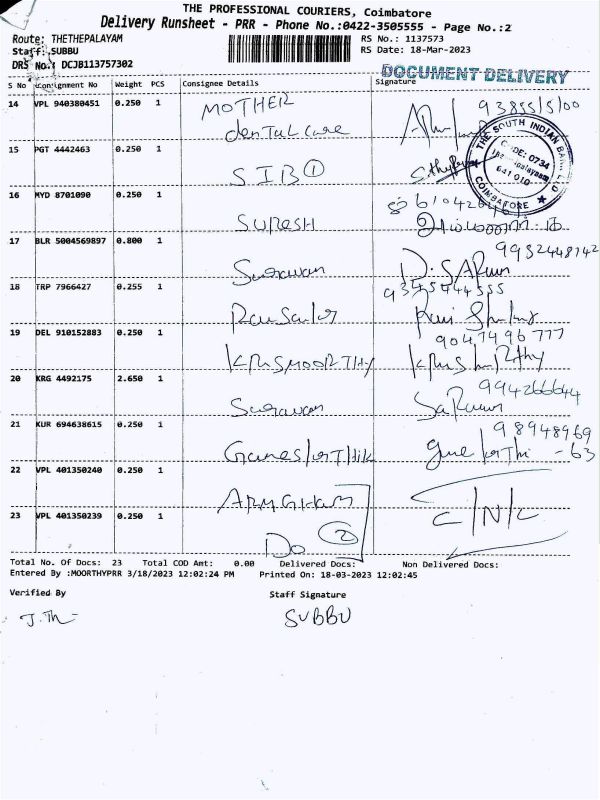 THE PROFESSIONAL COURIERS, Coimbatore
Delivery Runsheet - PRR - Phone No.:0422-3505555 - Page No.:2
Route: THETHEPALAYAM
RS No.: 1137573
Staff: SUBBU
RS Date: 18-Mar-2023
DRS No.: DCJB113757302
DOCUMENT DELIVERY
S No Consignment No Weight PCS Consignee Details Signature
14 VPL 940380451 0.250 1 MOTHER
dental care
15 PGT 4442463 0.250 1 SIB 1
THE SOUTH INDIAN BANK
CODE: 0734
641 010
COIMBATORE
16 MYD 8701090 0.250 1 SURESH
17 BLR 5004569897 0.800 1
9952448142
18 TRP 7966427 0.255 1
9345444555
19 DEL 910152883 0.250 1 KRISMOORTHY
9047496777
20 KRG 4492175 2.650 1
994266644
21 KUR 694638615 0.250 1
98948969
-63
22 VPL 401350240 0.250 1
23 VPL 401350239 0.250 1 Do 2 C/N/C
Total No. Of Docs: 23 Total COD Amt: 0.00 Delivered Docs: Non Delivered Docs:
Entered By :MOORTHYPRR 3/18/2023 12:02:24 PM Printed On: 18-03-2023 12:02:45
Verified By Staff Signature
J.Th SUBBU